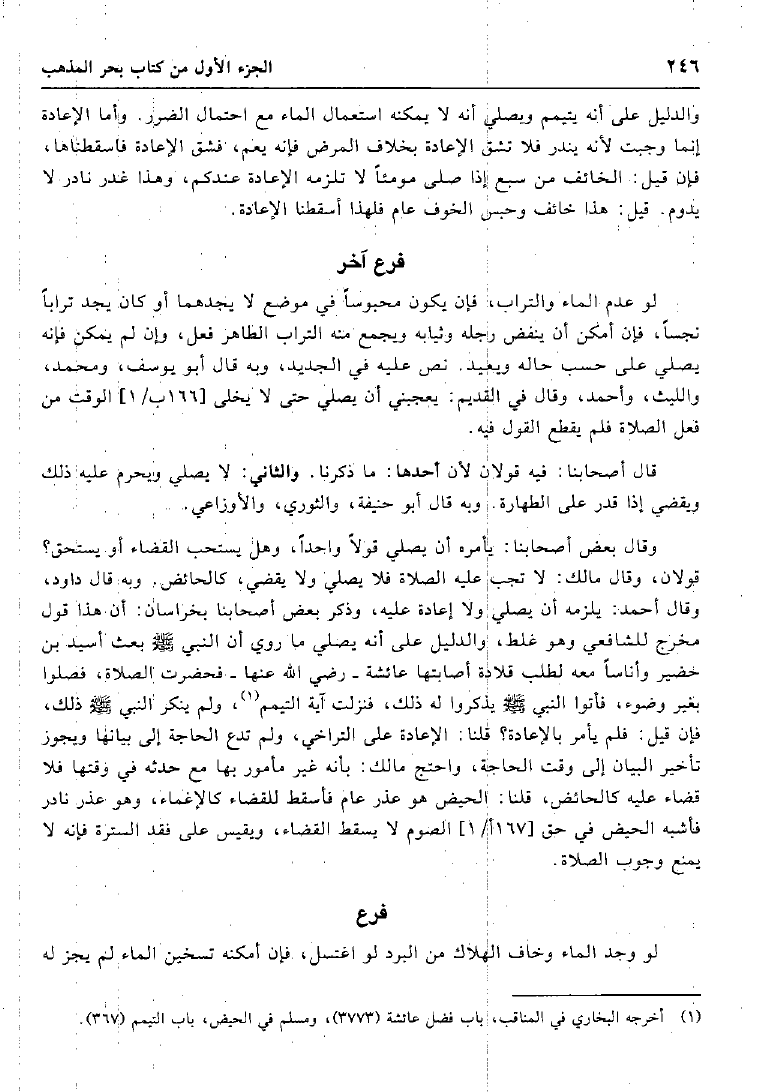 ٢٤٦ الجزء الأول من كتاب بحر المذهب
والدليل على أنه يتيمم ويصلي أنه لا يمكنه استعمال الماء مع احتمال الضرر. وأما الإعادة
إنما وجبت لأنه يندر فلا تشق الإعادة بخلاف المرض فإنه يعم، فشق الإعادة فاسقطناها،
فإن قيل: الخائف من سبع إذا صلى مومئاً لا تلزمه الإعادة عندكم، وهذا غدر نادر لا
يدوم. قيل: هذا خائف وحبس الخوف عام فلهذا أسقطنا الإعادة.
فرع آخر
لو عدم الماء والتراب، فإن يكون محبوساً في موضع لا يجدهما أو كان يجد تراباً
نجساً، فإن أمكن أن ينفض رجله وثيابه ويجمع منه التراب الطاهر فعل، وإن لم يمكن فإنه
يصلي على حسب حاله ويعيد. نص عليه في الجديد، وبه قال أبو يوسف، ومحمد،
والليث، وأحمد، وقال في القديم: يعجبني أن يصلي حتى لا يخلى [١٦٦ب/ ١] الوقت من
فعل الصلاة فلم يقطع القول فيه.
قال أصحابنا: فيه قولان لأن أحدها: ما ذكرنا. والثاني: لا يصلي ويحرم عليه ذلك
ويقضي إذا قدر على الطهارة. وبه قال أبو حنيفة، والثوري، والأوزاعي.
وقال بعض أصحابنا: يأمره أن يصلي قولاً واحداً، وهل يستحب القضاء أو يستحق؟
قولان، وقال مالك: لا تجب عليه الصلاة فلا يصلي ولا يقضي، كالحائض. وبه قال داود،
وقال أحمد: يلزمه أن يصلي ولا إعادة عليه، وذكر بعض أصحابنا بخراسان: أن هذا قول
مخرج للشافعي وهو غلط، والدليل على أنه يصلي ما روي أن النبي ﷺ بعث أسيد بن
خضير وأناساً معه لطلب قلادة أصابتها عائشة ـ رضي الله عنها ـ فحضرت الصلاة، فصلوا
بغير وضوء، فأتوا النبي ﷺ يذكروا له ذلك، فنزلت آية التيمم(١)، ولم ينكر النبي ﷺ ذلك،
فإن قيل: فلم يأمر بالإعادة؟ قلنا: الإعادة على التراخي، ولم تدع الحاجة إلى بيانها ويجوز
تأخير البيان إلى وقت الحاجة، واحتج مالك: بأنه غير مأمور بها مع حدثه في وقتها فلا
قضاء عليه كالحائض، قلنا: الحيض هو عذر عام فأسقط للقضاء كالإغماء، وهو عذر نادر
فأشبه الحيض في حق [١٦٧أ/ ١] الصوم لا يسقط القضاء، ويقيس على فقد السترة فإنه لا
يمنع وجوب الصلاة.
فرع
لو وجد الماء وخاف الهلاك من البرد لو اغتسل، فإن أمكنه تسخين الماء لم يجز له
(١) أخرجه البخاري في المناقب، باب فضل عائشة (٣٧٧٣)، ومسلم في الحيض، باب التيمم (٣٦٧).